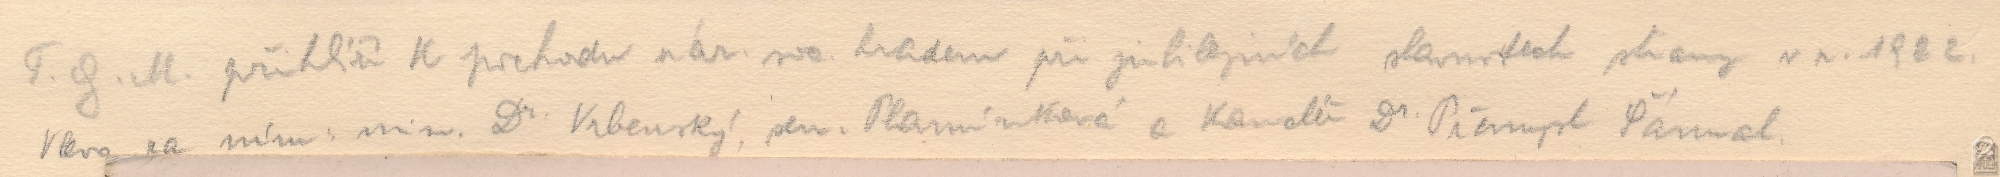 T. G. M. přihlíží k průchodu nár. soc. hradem při jubilejních slavnostech strany v r. 1922.
Vlevo za ním: min. Dr. Vrbenský, sen. Plamínková a kancléř Dr. Přemysl Šámal.